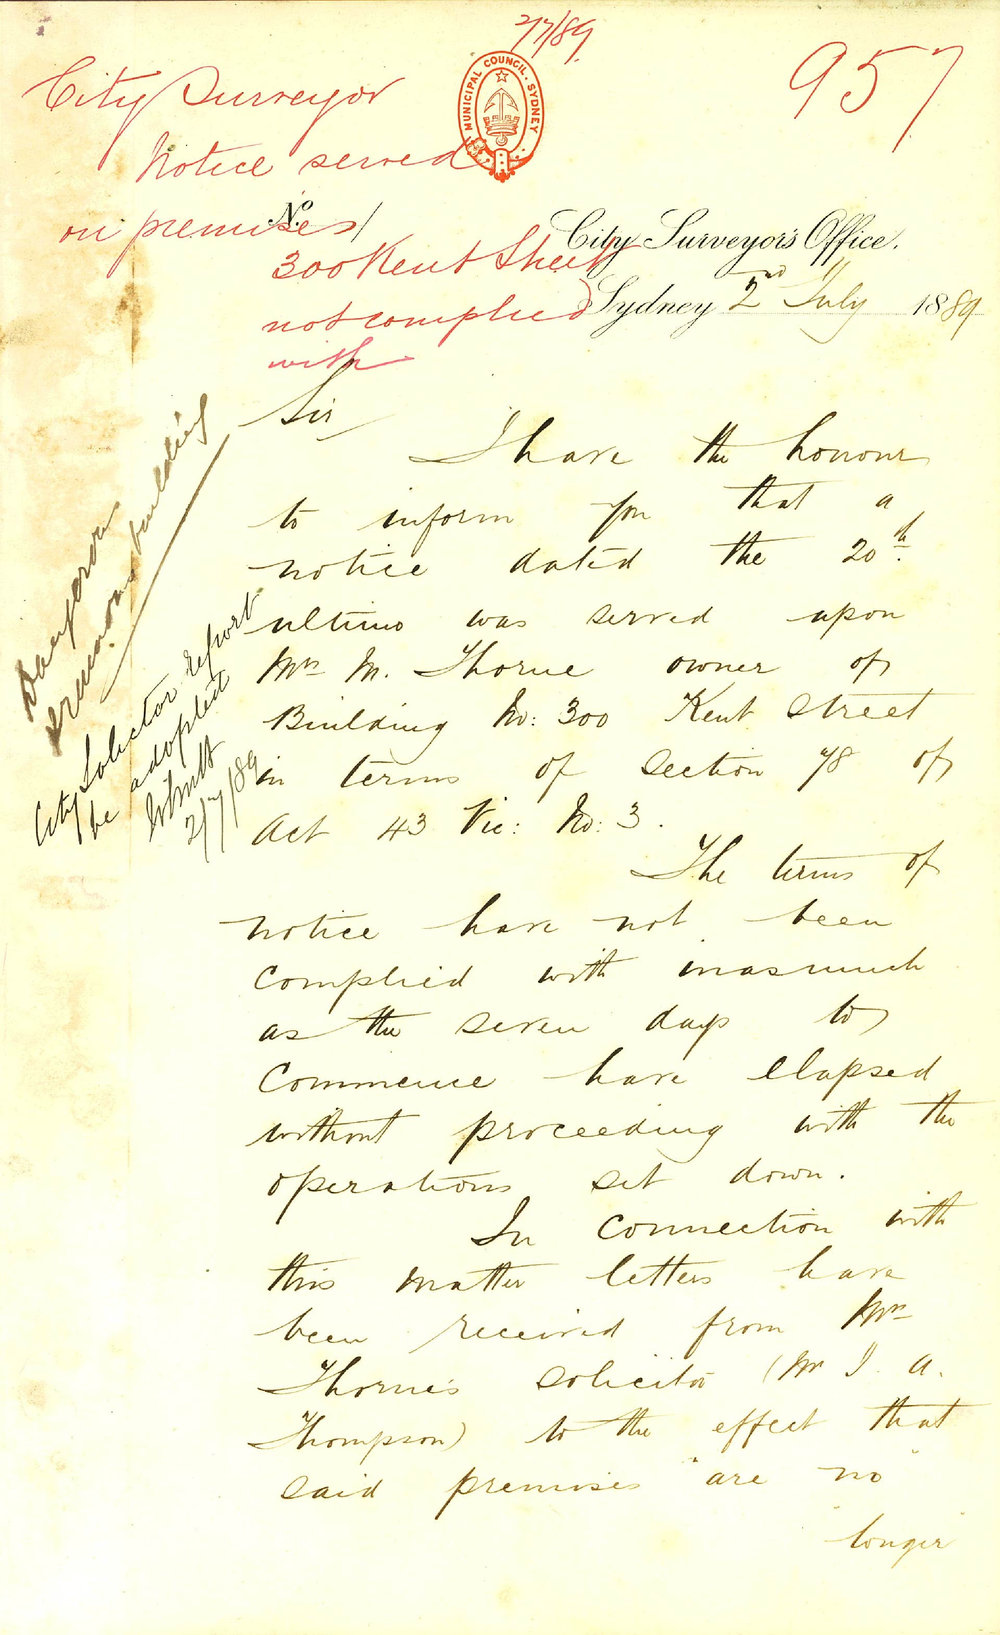 2/7/89
957
MUNICIPAL COUNCIL. SYDNEY
City Surveyor
Notice served
on premises
300 Kent Street
not complied
with
No.
City Surveyor's Office.
Sydney 2nd July 1889
Sir
I have the honour
to inform you that a
notice dated the 20th
ultimo was served upon
Mrs M. Thorne owner of
Building No: 300 Kent Street
in terms of Section 78 of
Act 43 Vic: No: 3.
The terms of
notice have not been
complied with inasmuch
as the seven days to
commence have elapsed
without proceeding with the
operations set down.
In connection with
this matter letters have
been received from Mrs
Thorne's solicitor (Mr J. A.
Thompson) to the effect that
said premises "are no"
"longer"
Dangerous
building
City Solicitor report
be adopted
2/7/89